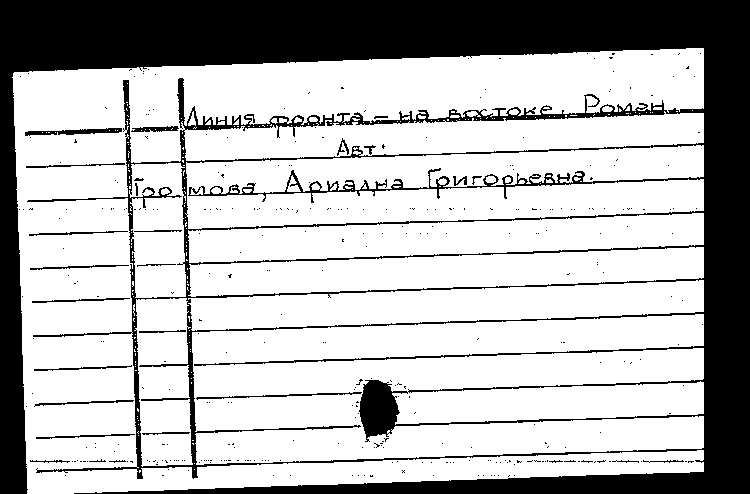 Линия фронта – на востоке. Роман.
Авт:
Громова, Ариадна Григорьевна.